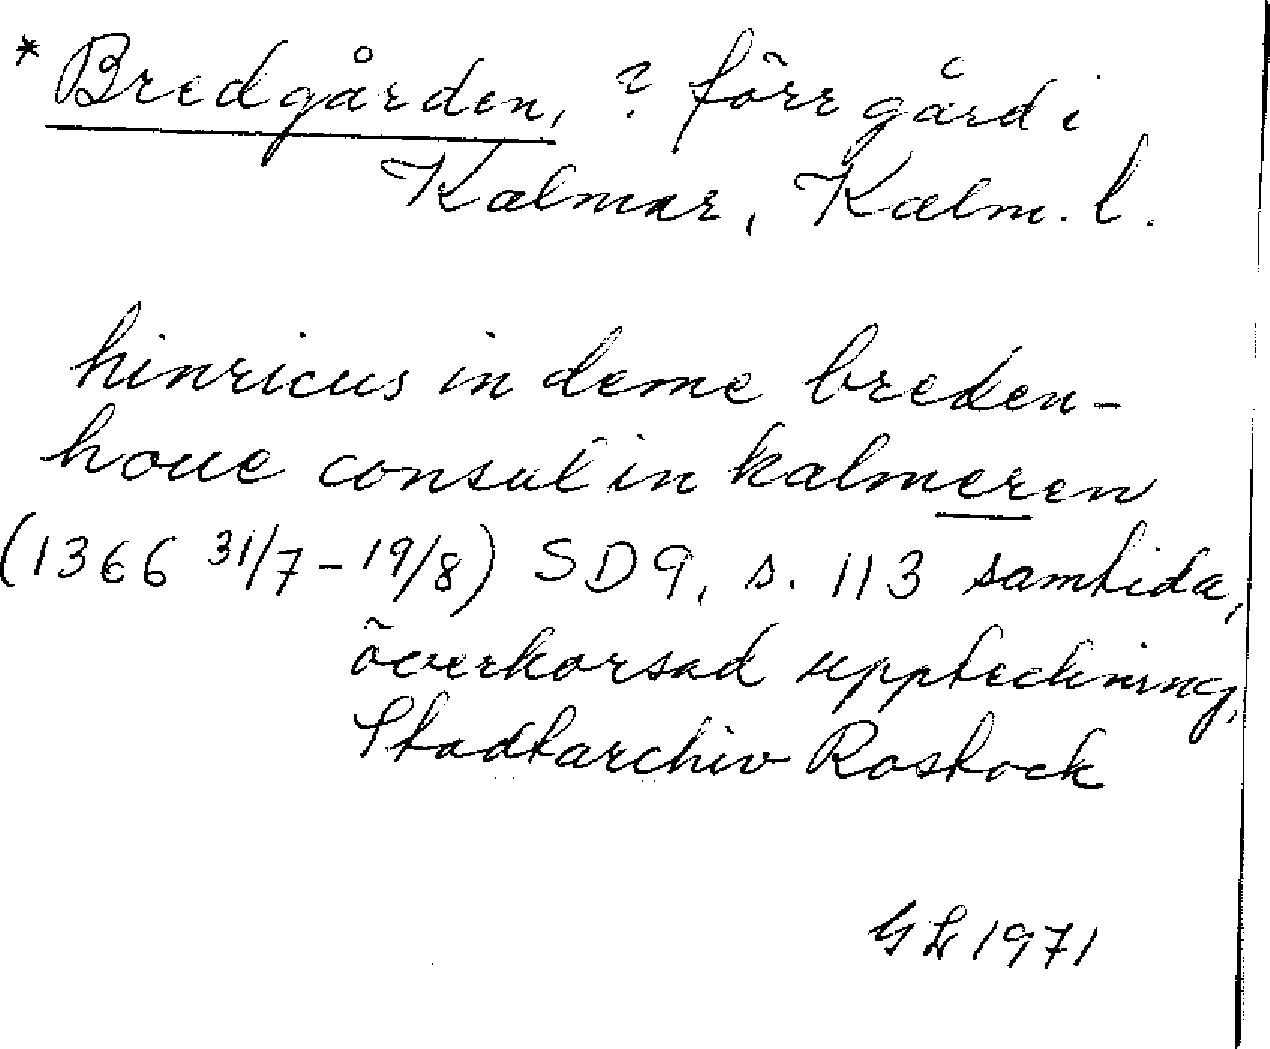 * Bredgården, ? förr gård i
Kalmar, Kalm. l.
hinricus in deme breden-
houe consul in kalmeren
(1366 31/7-19/8) SD 9, s. 113 samtida,
överkorsad uppteckning,
Stadtarchiv Rostock
GL 1971